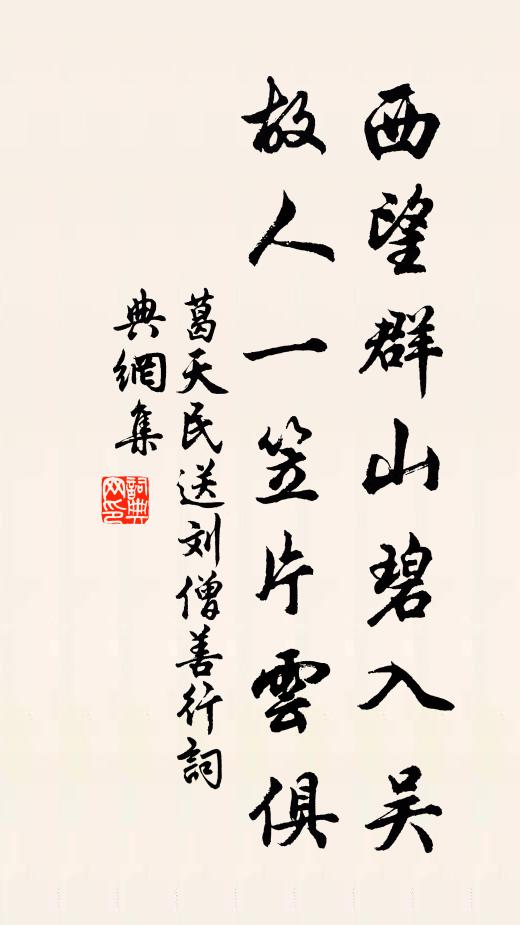 西望群山碧入吴
故人一笠片雲俱
葛天民送刘僧善行詞
典網集
詞典
网印